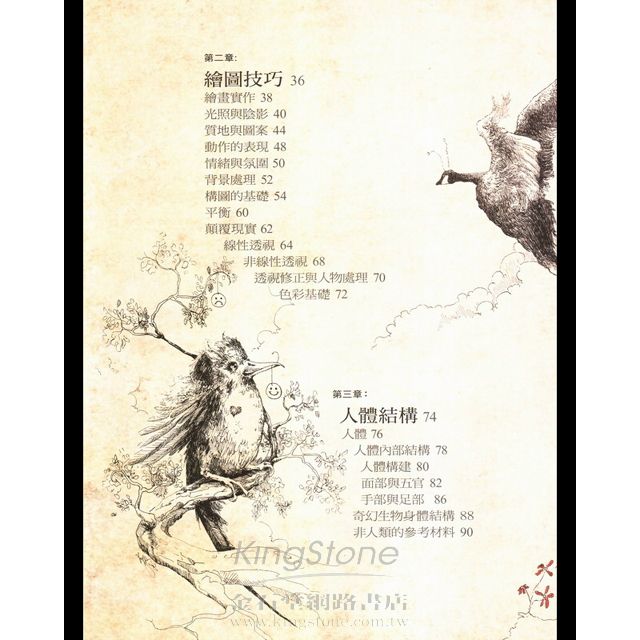 第二章:
繪圖技巧 36
繪畫實作 38
光照與陰影 40
質地與圖案 44
動作的表現 48
情緒與氛圍 50
背景處理 52
構圖的基礎 54
平衡 60
顛覆現實 62
線性透視 64
非線性透視 68
透視修正與人物處理 70
色彩基礎 72
第三章:
人體結構 74
人體 76
人體內部結構 78
人體構建 80
面部與五官 82
手部與足部 86
奇幻生物身體結構 88
非人類的參考材料 90
KingStone
金石堂網路書店
www.kingstone.com.tw